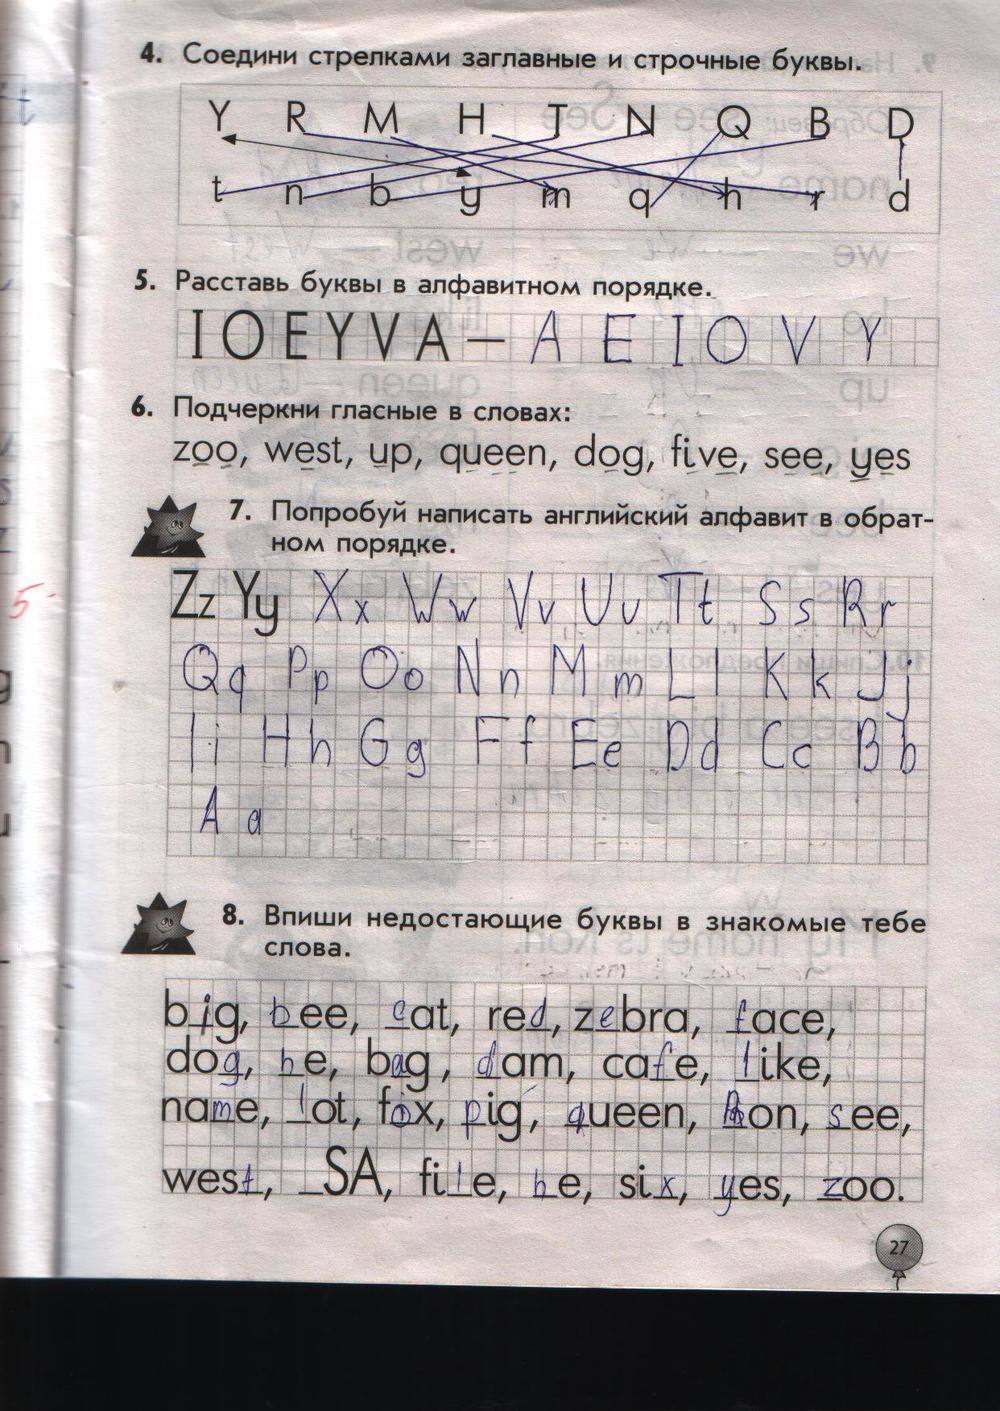 4. Соедини стрелками заглавные и строчные буквы.
Y R M H T N Q B D
t n b y m q h r d
5. Расставь буквы в алфавитном порядке.
I O E Y V A — A E I O V Y
6. Подчеркни гласные в словах:
zoo, west, up, queen, dog, five, see, yes
7. Попробуй написать английский алфавит в обрат-
ном порядке.
Zz Yy Xx Ww Vv Uu Tt Ss Rr
Qq Pp Oo Nn Mm Ll Kk Jj
Ii Hh Gg Ff Ee Dd Cc Bb
Aa
8. Впиши недостающие буквы в знакомые тебе
слова.
big, bee, cat, red, zebra, face,
dog, he, bag, dam, cafe, like,
name, lot, fox, pig, queen, Ron, see,
west, _SA, file, he, six, yes, zoo.
27
5